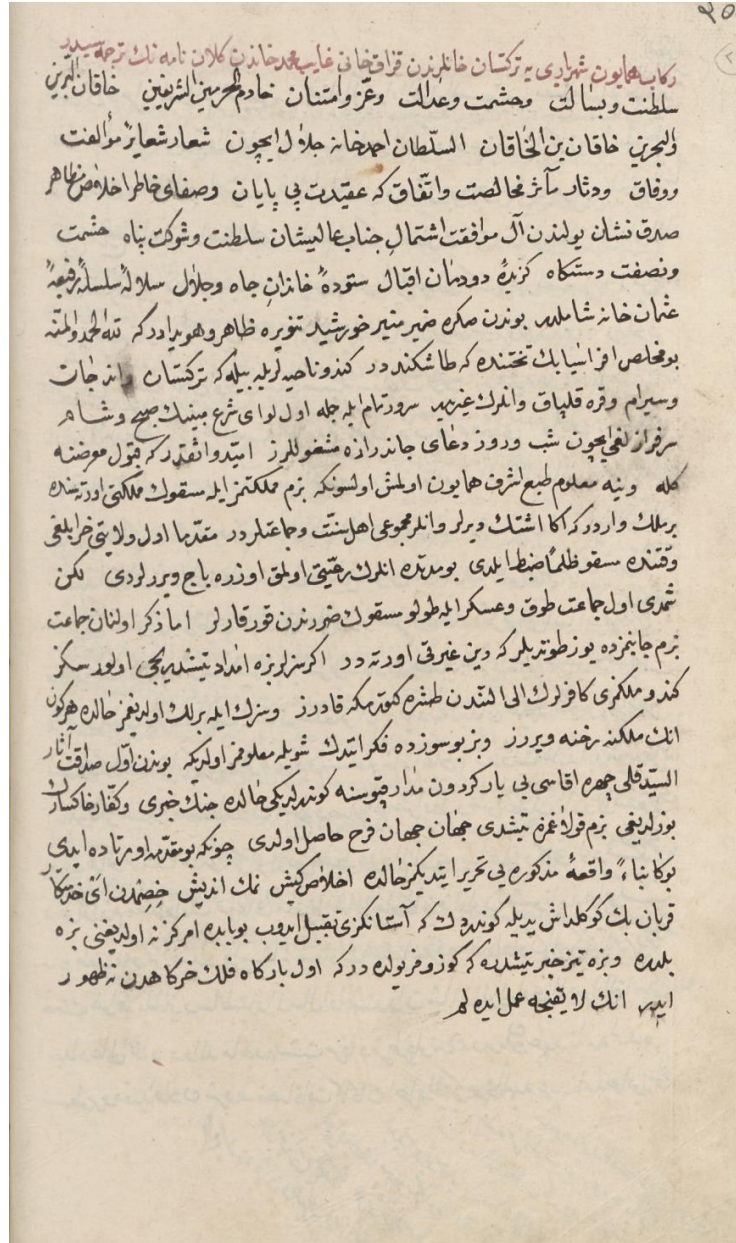 ٣٥
٢
ركاب همايون شهريارى يه تركستان خانلرندن قزاق خانى غايب محمد خاندن كلان نامه نك ترجمه سيدر
سلطنت وبسالت وحشمت وعدالت وعز وامتنان خادم الحرمين الشريفين خاقان البرين
والبحرين خاقان بن الخاقان السلطان احمد خانه جلال ايچون شعار شعاير مؤالفت
ووفاق ودثار مآثر مخالصت واتفاق كه عقيدت بى پايان وصفاى خاطر اخلاص مظاهر
صدق نشان يولندن آل موافقت اشتمال جناب عاليشان سلطنت وشوكت پناه حشمت
ونصفت دستكاه كزيدهٔ دودمان اقبال ستودهٔ خاندان جاه وجلال سلالهٔ سلسلهٔ رفيعهٔ
عثمان خانه شاملدر بوندن صكره ضمير منير خورشيد تنويره ظاهر وهويدادر كه لله الحمد والمنه
بو مخلص افراسيابك تختنده كه طاشكنددر كندو ناحيه لريله بيله كه تركستان واندجان
وسيرام وقره قلپاق وانلرك غيريدر سرور تمام ايله جمله اول لواى شرع مبينك صبح وشام
سرفرازلغى ايچون شب وروز دعاى جاندرازه مشغوللرز اميد واثقدر كه قبول معرضنه
كله وينه معلوم طبع اشرف همايون اولمش اولسونكه بزم مملكتمز ايله مسقوك ملكتى اورته سنده
بر ملك واردر كه اكا اشتك ديرلر وانلر مجموعى اهل سنت وجماعتلردر مقدما اول ولايتى خرابلغى
وقتنده مسقو ظلماً ضبط ايلدى بو مدتده انلرك رعيتى اولمق اوزره باج ويررلردى لكن
شمدى اول جماعت طوق وعسكر ايله طولو مسقوك ضررندن قورقارلر اما ذكر اولنان جماعت
بزم جانبمزده يوز طوتديلر كه دين غيرتى اورته در اكر سزلر بزه امداد يتشديريجى اولورسكز
كندو ملكمزى كافرلرك الى التندن طشره كتورمكه قادرز وسزك ايله برلك اولديغمز حالده هركون
انك ملكنه رخنه ويررز وبز بو سوزده فكر ايتدك شويله معلوممز اولديكه بوندن اول صداقت آثار
السيد قلى چهره اقاسى بى يار كردون مدار قپوسنه كوندرلديكى حالده جنك خبرى وكفار خاكسارك
بوزلديغى بزم قولاغمزه يتشدى جهان جهان فرح حاصل اولدى چونكه بو مقدمه اورتاده ايدى
بوكا بناءً واقعهٔ مذكوره يى تحرير ايتديكمز حالده اخلاص كيش نمك انديش خصمندن اعنى خدمتكار
قربان بك كوكلداش يديله كوندردك كه آستانكزى تقبيل ايدوب بو بابده امركز نه اولديغنى بزه
بلدره وبزه تيز خبر يتشدره كه كوزومز يولده در كه اول باركاه فلك خركاهدن نه ظهور
ايدر انك لايقنجه عمل ايده لم